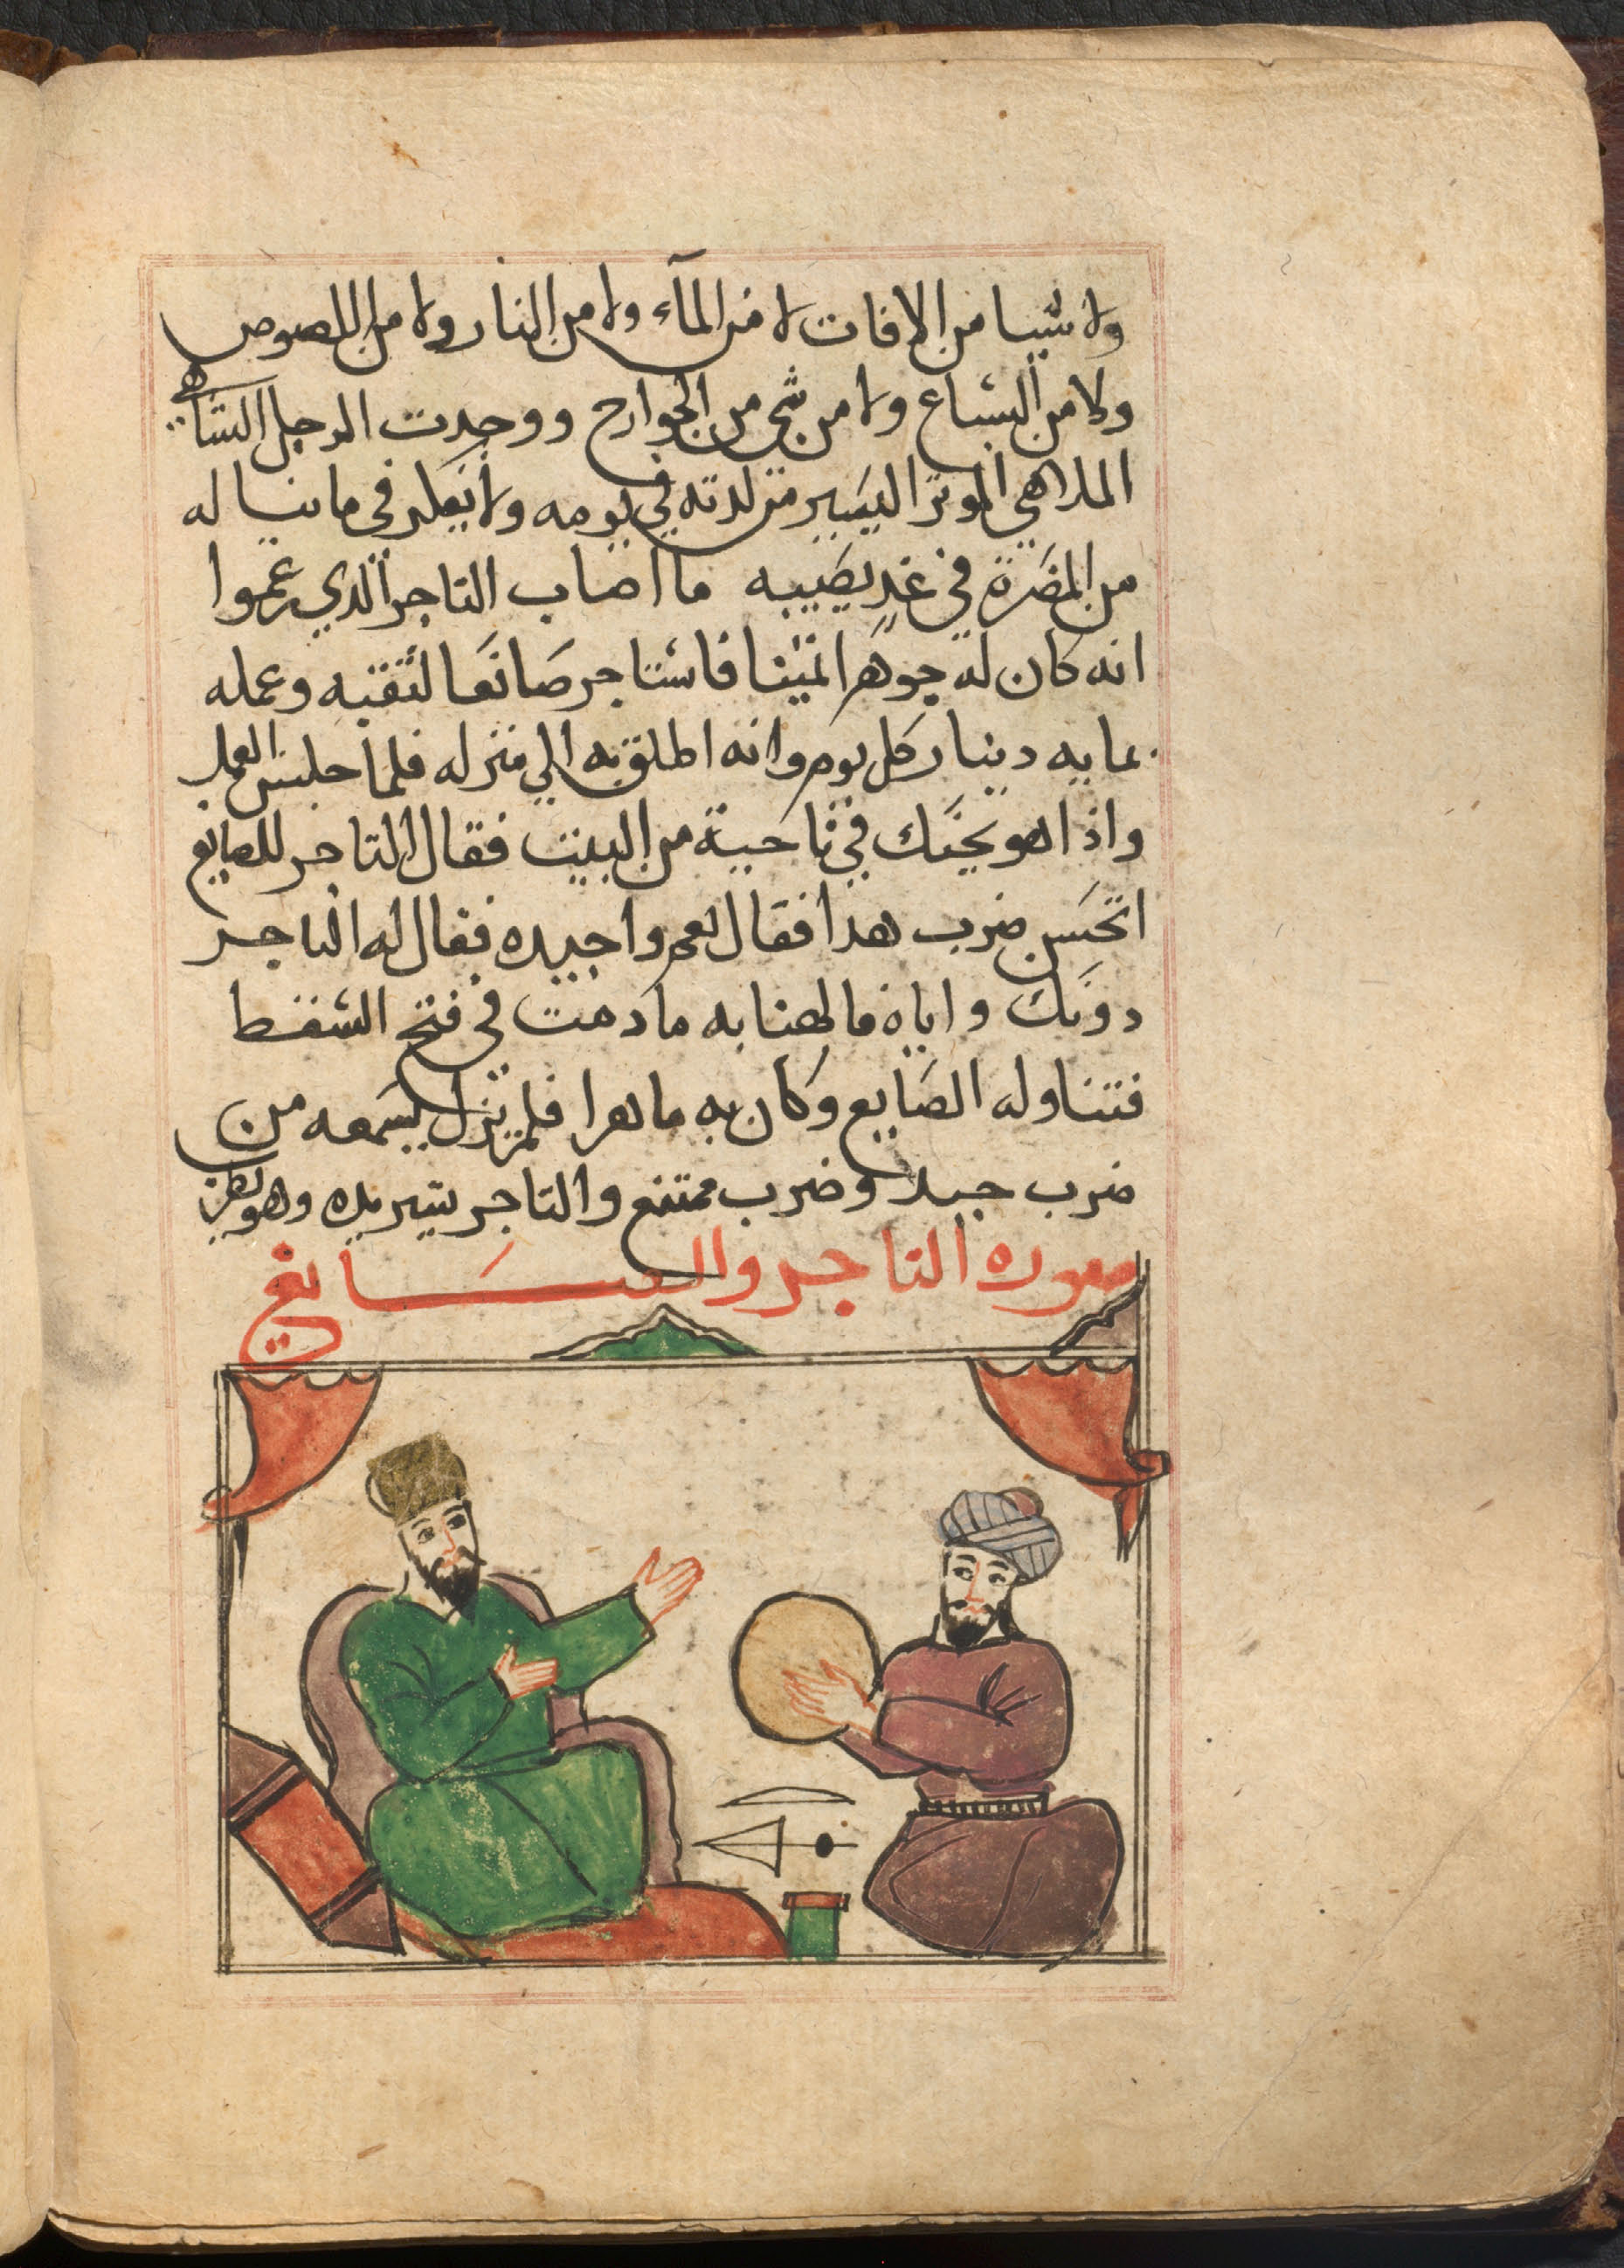 ولا شيا من الافات لا من المآء ولا من النار ولا من اللصوص
ولا من السباع ولا من شي من الجوارح ووجدت الرجل الساهي
الملاهي الموثر اليسير من لدته في يومه ولا يفكر في ما يناله
من المضرة في غدٍ يصيبه ما اصاب التاجر الدي زعموا
انه كان له جوهرا ثمينا فاستاجر صَانعَا لثقبه وعمله
بمايه دينار كل يوم وانه انطلق به الي منزله فلما جلس للعمل
واذا هو بجنك في ناحية من البيت فقال التاجر للصايغ
اتحسَن ضرب هدا فقال نعم واجيده فقال له التاجر
دونك واياه فالهنا به ما دمت في فتح السفط
فتناوله الصَايع وكان به ماهرا فلم يزل يسَمعه من
ضرب جيد وضرب ممتنع والتاجر يشير بيده وهو يطرب
صوره التاجر والصَايغ